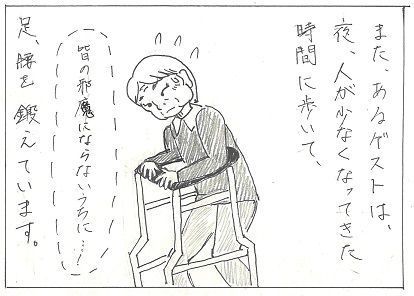 また、あるゲストは、
夜、人が少なくなってきた
時間に歩いて、
皆の邪魔にならないうちに…!
足、腰を鍛えています。